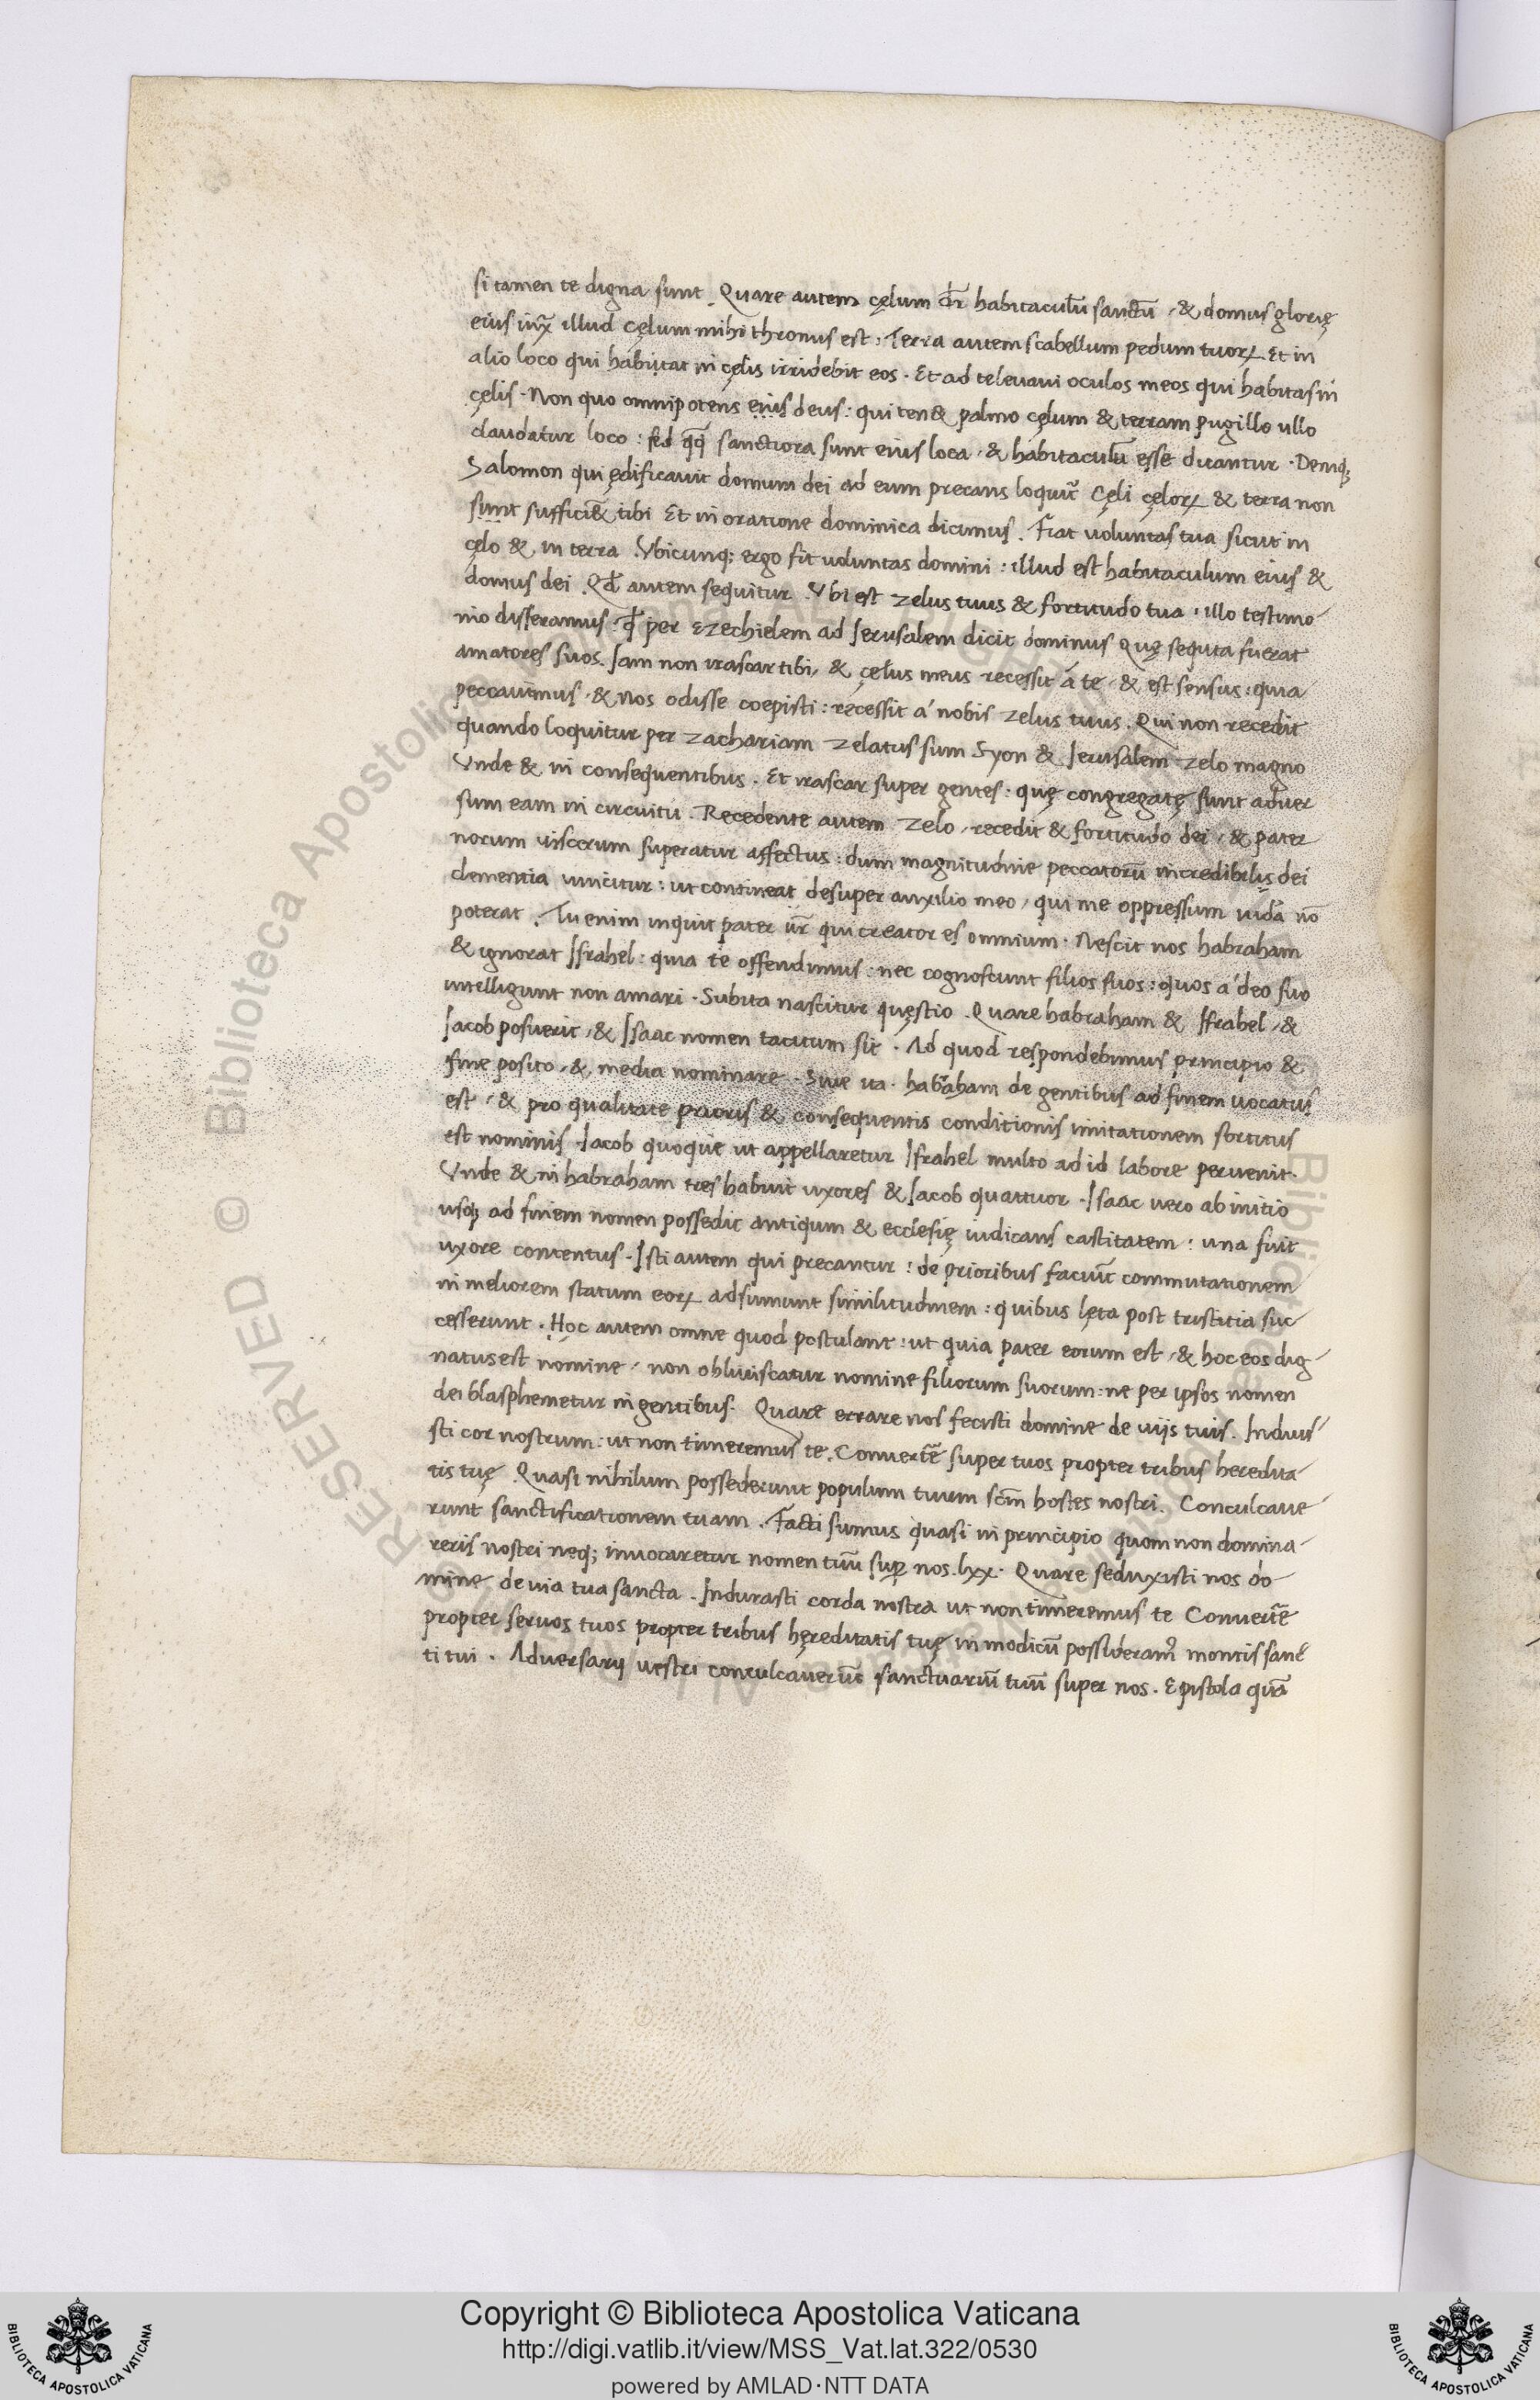 si tamen te digna sunt. Quare autem cęlum dr̄ habitaculū sanctū, & domus glorię
eius iux̄ illud Cęlum mihi thronus est: Terra autem scabellum pedum tuorꝝ. Et in
alio loco qui habitat in cęlis irridebit eos. Et ad te levavi oculos meos qui habitas in
cęlis. Non quo omnipotens eius deus: qui ten& palmo cęlum & terram pugillo ullo
claudatur loco: sed qq̄ sanctiora sunt eius loca, & habitaculū esse dicantur. Deniq;
Salomon qui ędificavit domum dei ad eum precans loquit̄ Cęli cęlorꝝ & terra non
sunt suffici& tibi Et in oratione dominica dicimus. Fiat voluntas tua sicut in
cęlo & in terra. Ubicunq; ergo fit voluntas domini: illud est habitaculum eius &
domus dei. Qd̄ autem sequitur. Ubi est zelus tuus & fortitudo tua: illo testimo-
nio disseramus: qd̄ per Ezechielem ad Jerusalem dicit dominus Quę sequta fuerat
amatores suos. Jam non irascar tibi, & çelus meus recessit á te, & est sensus: quia
peccavimus, & nos odisse coepisti: recessit á nobis zelus tuus. Qui non recedit
quando loquitur per zachariam zelatus sum Syon & Jerusalem zelo magno
Unde & in consequentibus. Et irascar super gentes: quę congregatę sunt adver
sum eam in circuitu. Recedente autem zelo, recedit & fortitudo dei, & pater
norum viscerum superatur affectus: dum magnitudine peccatorū incredibilis dei
clementia vincitur: ut contineat desuper auxilio meo, qui me oppressum vidā nō
poterat. Tu enim inquit pater nr̄ qui creator es omnium. Nescit nos habraham
& ignorat Israhel: quia te offendimus: nec cognoscunt filios suos: quos á deo suo
intelligunt non amari. Subita nascitur quęstio. Quare habraham & Israhel, &
Jacob posuerit, & Isaac nomen tacitum sit. Ad quod respondebimus principio &
fine posito, & media nominare. Sive ita. habraham de gentibus ad finem vocatus
est, & pro qualitate prioris & consequentis conditionis imitationem sortitus
est nominis. Jacob quoque ut appellaretur Israhel multo ad id labore pervenit.
Unde & in habraham tres habuit uxores & Jacob quattuor. Isaac vero ab initio
usq; ad finem nomen possedit antiqum & ecclesię indicans castitatem: una fuit
uxore contentus. Isti autem qui precantur: de prioribus faciūt commutationem
in meliorem statum eorꝝ adsumunt similitudinem: quibus lęta post tristitia suc
cesserunt. Hoc autem omne quod postulant: ut quia pater eorum est, & hoc eos dig-
natus est nomine, non obliviscatur nomine filiorum suorum: ne per ipsos nomen
dei blasphemetur in gentibus. Quare errare nos fecisti domine de viis tuis. Indui-
sti cor nostrum: ut non timeremus te. Convertē super tuos propter tribus heredita-
tis tuę Quasi nihilum possederunt populum tuum scm̄ hostes nostri. Conculcave-
runt sanctificationem tuam. Facti sumus quasi in principio quom non domina-
reris nostri neq; invocaretur nomen tuū suꝑ nos. lxx. Quare seduxisti nos do
mine de via tua sancta. Indurasti corda nostra ut non timeremus te Convertē
propter servos tuos propter tribus hęreditatis tuę in modicū possideram̄ montis sanc
ti tui. Adversarii vestri conculcaverūt sanctuariū tuū super nos. Epistola quā
RESERVED © Biblioteca Apostolica Vaticana
Copyright © Biblioteca Apostolica Vaticana
http://digi.vatlib.it/view/MSS_Vat.lat.322/0530
powered by AMLAD·NTT DATA
BIBLIOTECA APOSTOLICA VATICANA
BIBLIOTECA APOSTOLICA VATICANA